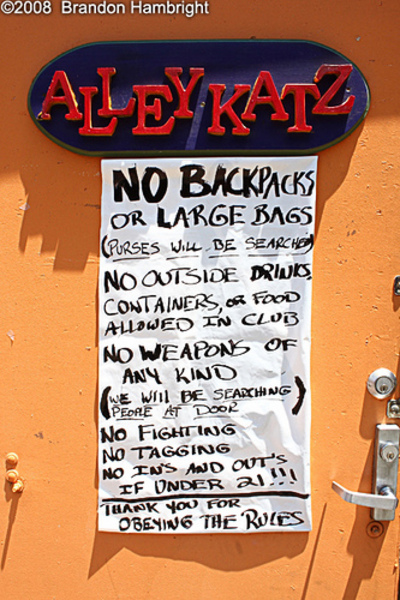 ©2008 Brandon Hambright
ALLEY KATZ
NO BACKPACKS
OR LARGE BAGS
(PURSES WILL BE SEARCHED)
NO OUTSIDE DRINKS,
CONTAINERS, OR FOOD
ALLOWED IN CLUB
NO WEAPONS OF
ANY KIND
(WE WILL BE SEARCHING
PEOPLE AT DOOR)
NO FIGHTING
NO TAGGING
NO IN'S AND OUT'S
IF UNDER 21!!!
THANK YOU FOR
OBEYING THE RULES